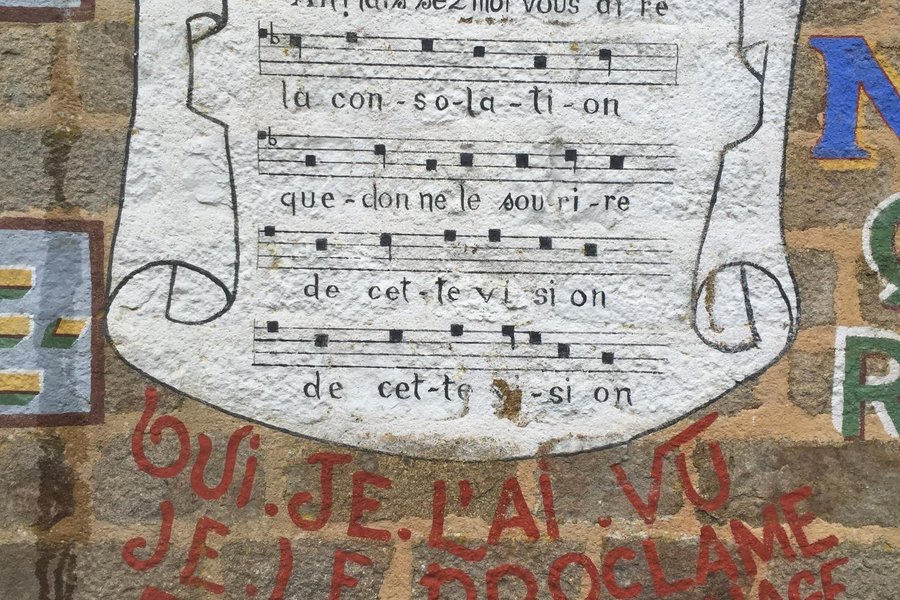 vous di re
la con-so-la-ti-on
que-don ne le sou-ri-re
de cet-te vi si on
de cet-te -si on
OUI.JE.L'AI.VU
JE.LE PROCLAME
N
R